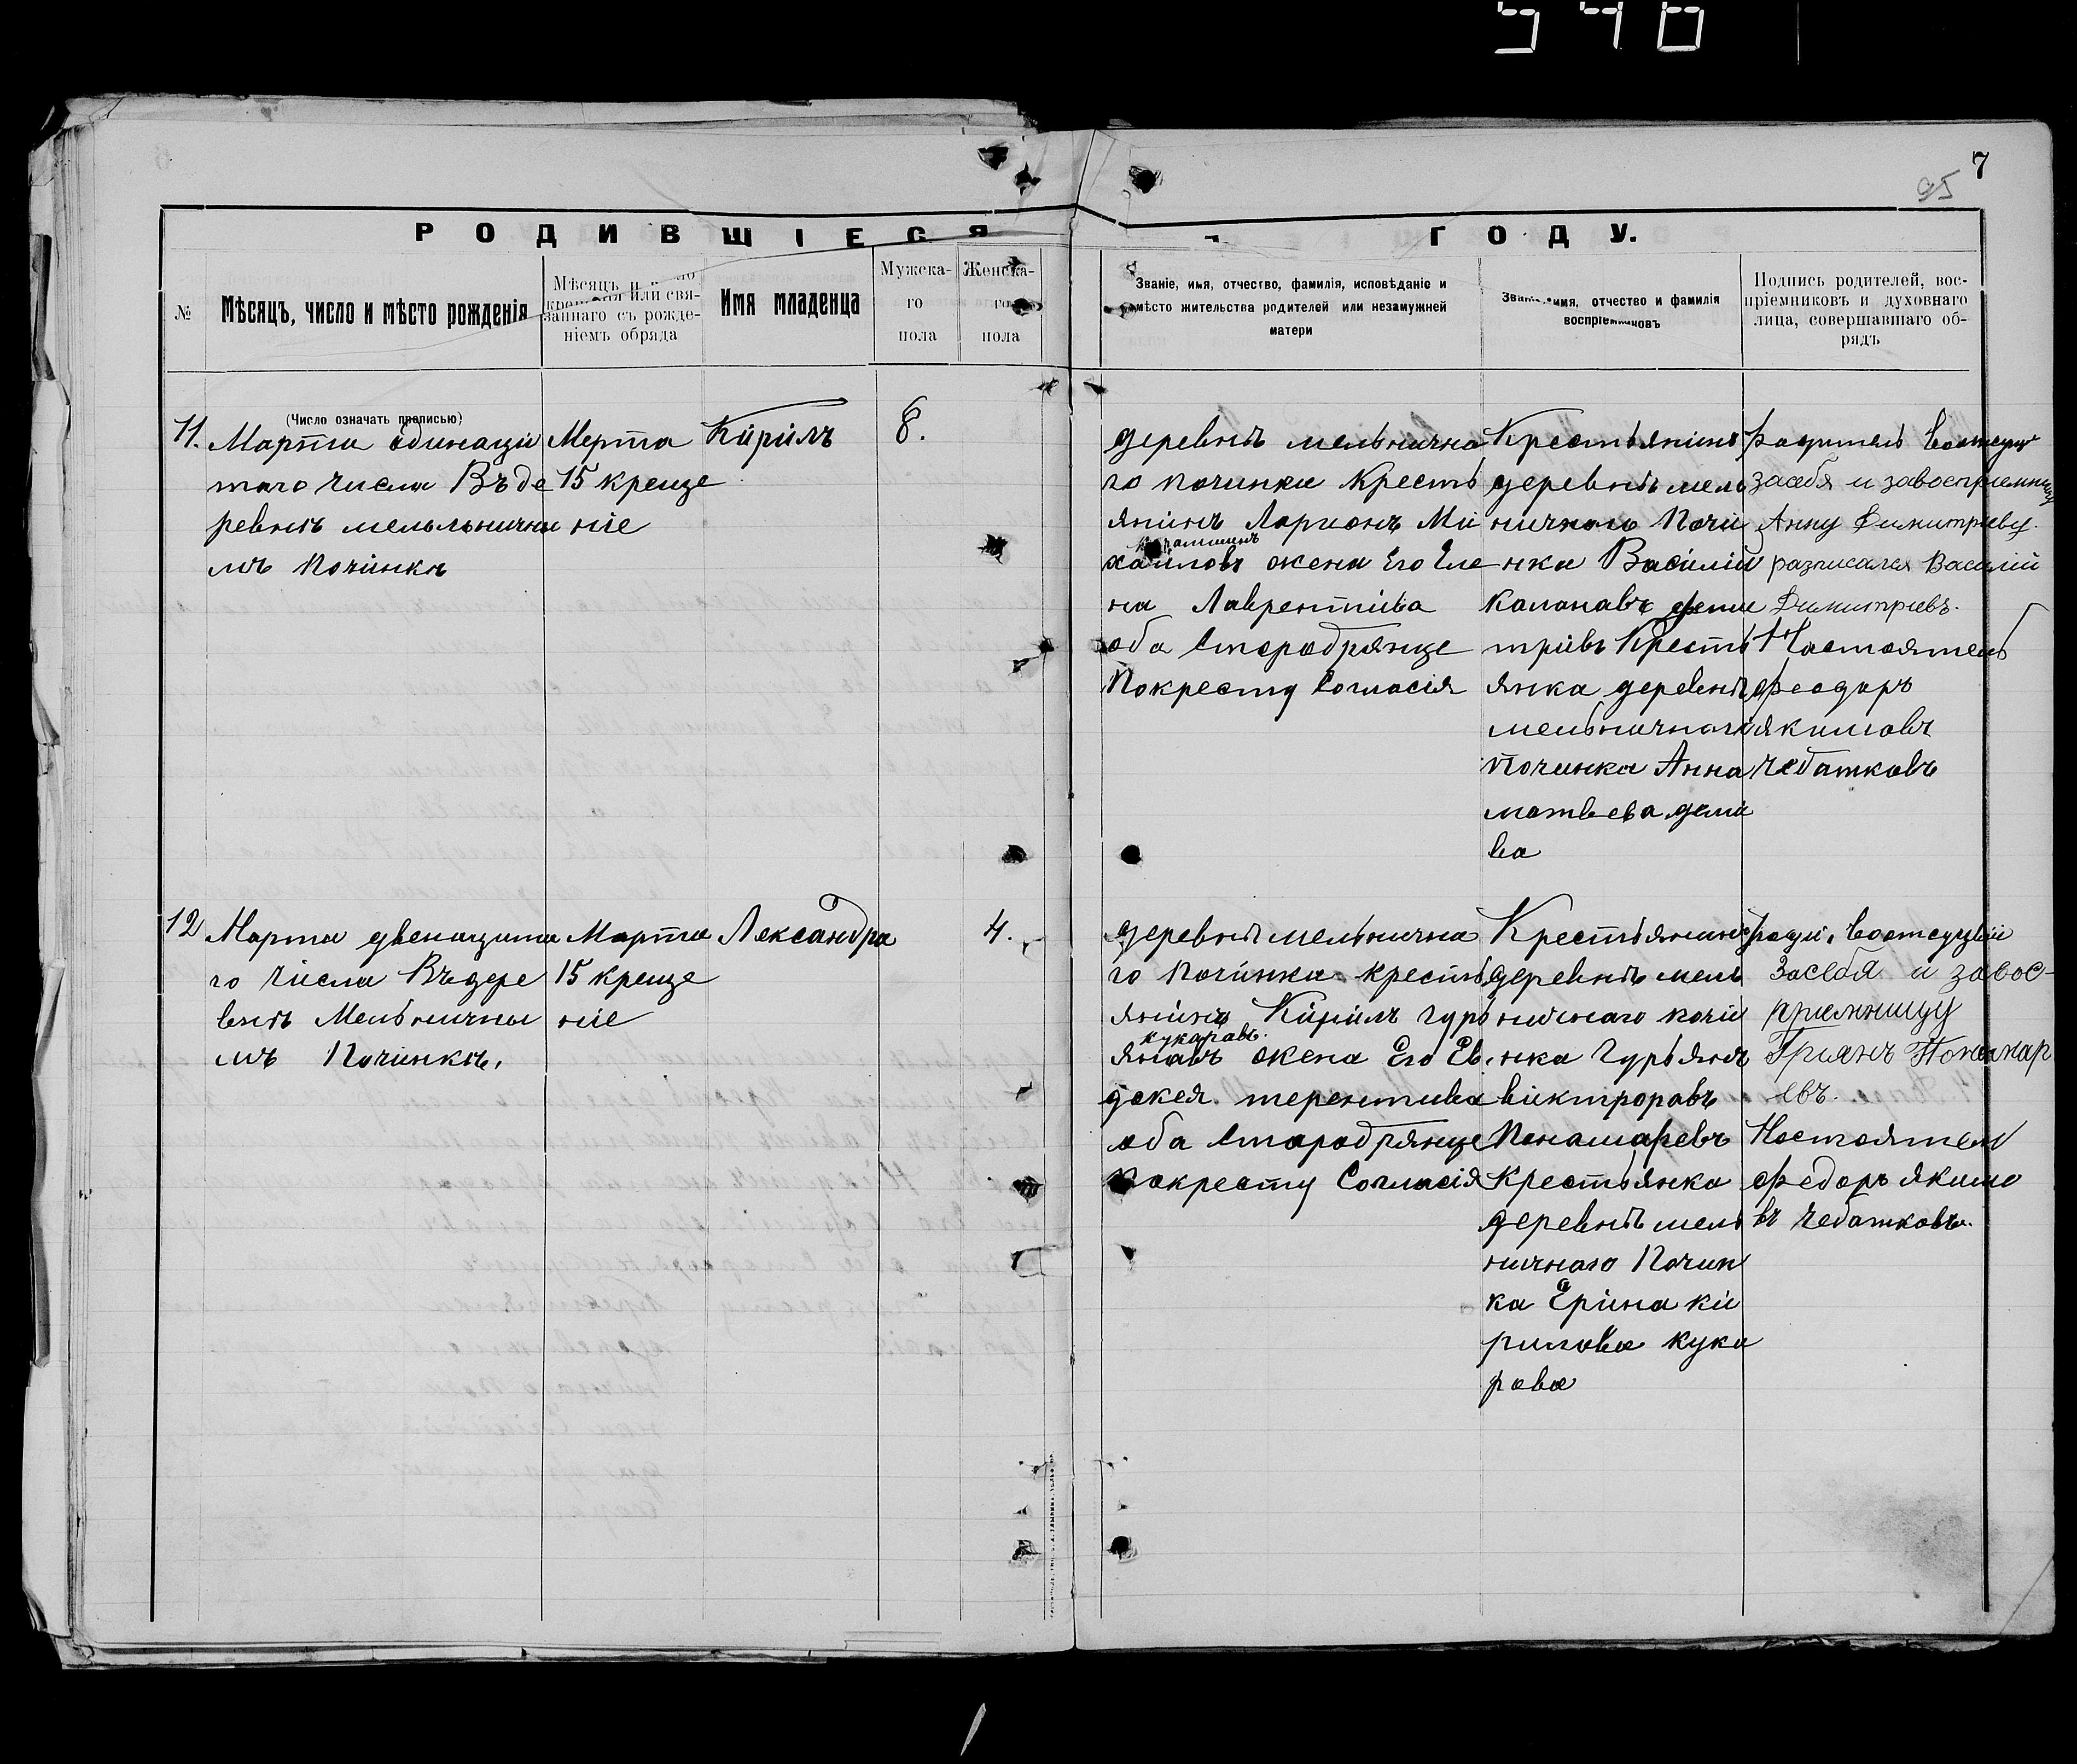 540
7
95
РОДИВШІЕСЯ
ГОДУ.
№
Мѣсяцъ, число и мѣсто рожденія
Мѣсяцъ и
крещенія или свя-
заннаго съ рожде-
ніемъ обряда
Имя младенца
Мужска-
го
пола
Женска-
го
пола
Званіе, имя, отчество, фамилія, исповѣданіе и
мѣсто жительства родителей или незамужней
матери
Званіе, имя, отчество и фамилія
воспріемниковъ
Подпись родителей, вос-
пріемниковъ и духовнаго
лица, совершавшаго об-
рядъ
(Число означать прописью)
11.
Марта одинаци
таго числа Въ де
ревнѣ мельльничны
мъ починкѣ
Мерта
15 креще
ніе
Кирилъ
8.
деревнѣ мельнична
го починка Кресть
янинъ Ларионъ Ми
хаиловъ жена Его Еле
на Лаврентиева
оба Стародрянце
Покресту Согласія
Крестьянинъ
деревнѣ мель
ничного Почи
нка Василий
Калапавъ
тривъ Кресть
янка деревнѣ
мельничнаго
Починка Анна
матвева дема
ва
засебя и завосприемницу
Анну Димитриеву.
разписался Василий
Димитриевъ.
Настоятель
Феодоръ
якимовъ
Чебатковъ
12
Марта двенацата
го числа Въ дере
внѣ Мельничны
мъ Починкѣ,
Марта
15 креще
ніе
Лександра
4.
деревнѣ мельнична
го починка кресть
янинъ Кирилъ гурь
кукаравъ.
янавъ жена Его Ев
докея терентива
оба Стародрянце
Покресту Согласія
Крестьянинъ
деревнѣ мель
ничнаго почи
нка Гурьянъ
виктроравъ
Понамаревъ
Крестьянка
деревнѣ мель
ничнаго Почин
ка Ерина ки
рилова кука
рава
Засебя и завос-
приемницу
Гриянъ Пономар
евъ.
Настоятель
Федоръ якимо
въ Чебатковъ.